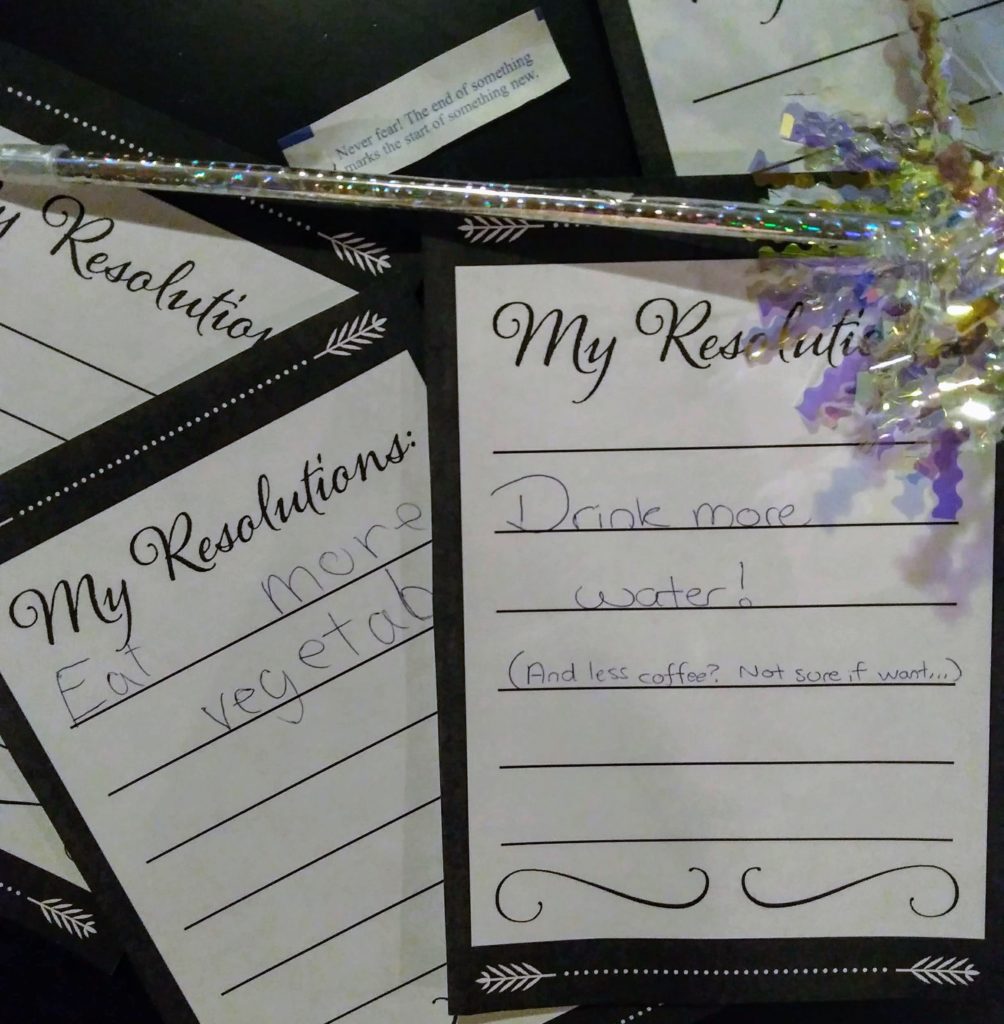 Never fear! The end of something
marks the start of something new.
Resolution
My Resolutions:
Eat more
vegetab
My Resolutio
Drink more
water!
(And less coffee? Not sure if want...)